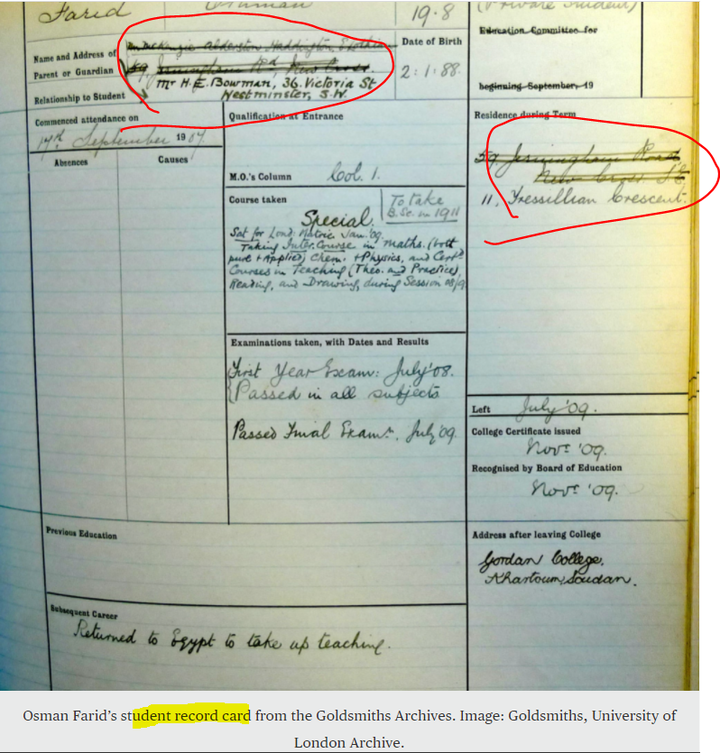 Farid
19.8
(Private Student)
Education Committee for
Name and Address of
Parent or Guardian
Mr McKenzie Alderston Haddington
59 Jerningham Rd New Cross
Mr H.E. Bowman, 36. Victoria St
Westminster, S.W.
Date of Birth
2:1:88.
beginning September, 19
Relationship to Student
Commenced attendance on
17th September 1907
Absences
Causes
Qualification at Entrance
M.O.'s Column Col. 1.
Course taken
To take
B.Sc. in 1911
Special.
Sat for Lond: Matric Jan. '09.
Taking Inter. Course in maths. (both
pure & Applied) Chem. & Physics, and Cert:
Courses in Teaching (Theo. and Practice),
Reading, and Drawing, during Session 08/9
Examinations taken, with Dates and Results
First Year Exam: July '08.
Passed in all subjects
Passed Final Exam:, July '09.
Residence during Term
59 Jerningham Road
New Cross S.E.
11, Tressillian Crescent.
Left July '09.
College Certificate issued
Nov: '09.
Recognised by Board of Education
Nov: '09.
Previous Education
Address after leaving College
Gordan College,
Khartoum, Soudan.
Subsequent Career
Returned to Egypt to take up teaching.
Osman Farid's student record card from the Goldsmiths Archives. Image: Goldsmiths, University of
London Archive.